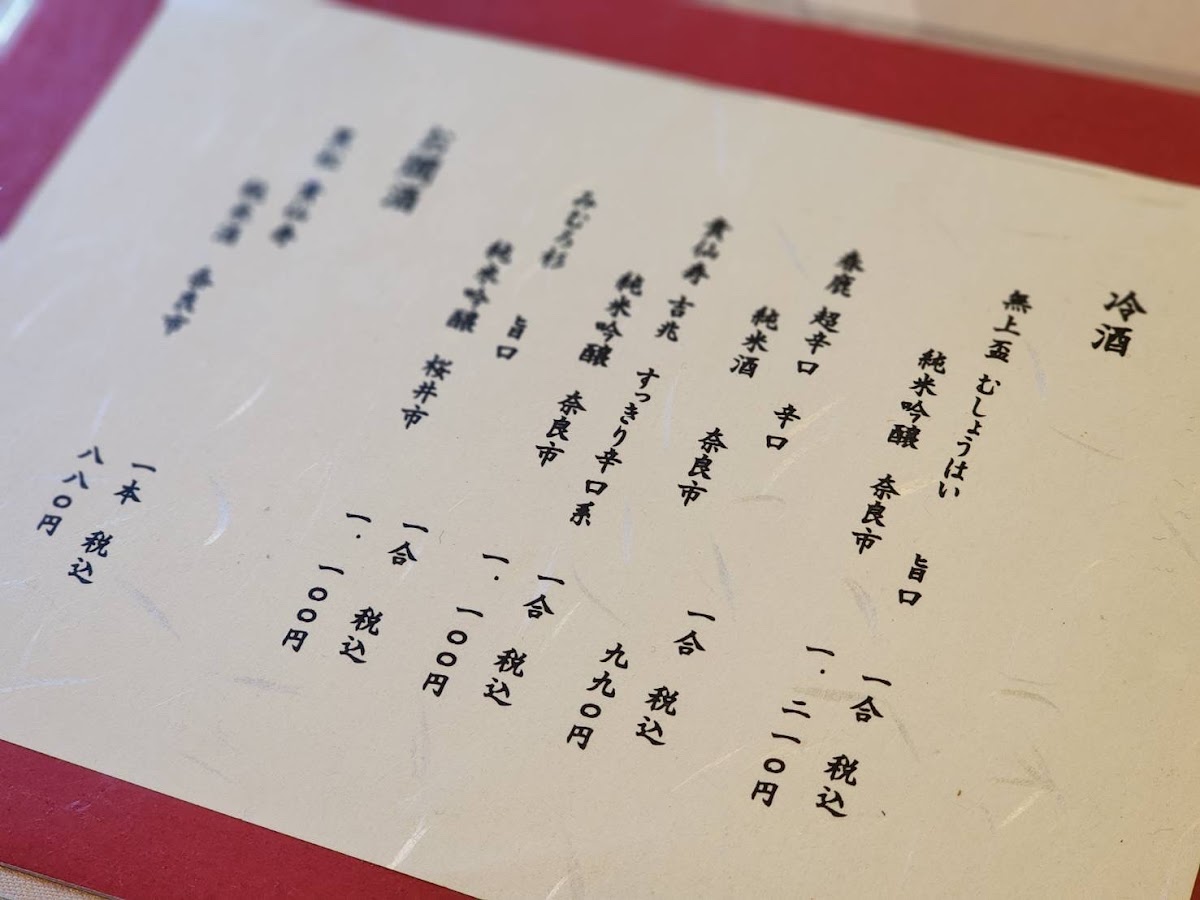 冷酒
無上盃 むしょうはい 旨口 一合 税込
純米吟醸 奈良市 一.二一〇円
春鹿 超辛口 辛口 一合 税込
純米酒 奈良市 九九〇円
貴仙寿 吉兆 すっきり辛口系 一合 税込
純米吟醸 奈良市 一.一〇〇円
みむろ杉 旨口 一合 税込
純米吟醸 桜井市 一.一〇〇円
お燗酒
豊祝 貴仙寿 一本 税込
純米酒 奈良市 八八〇円